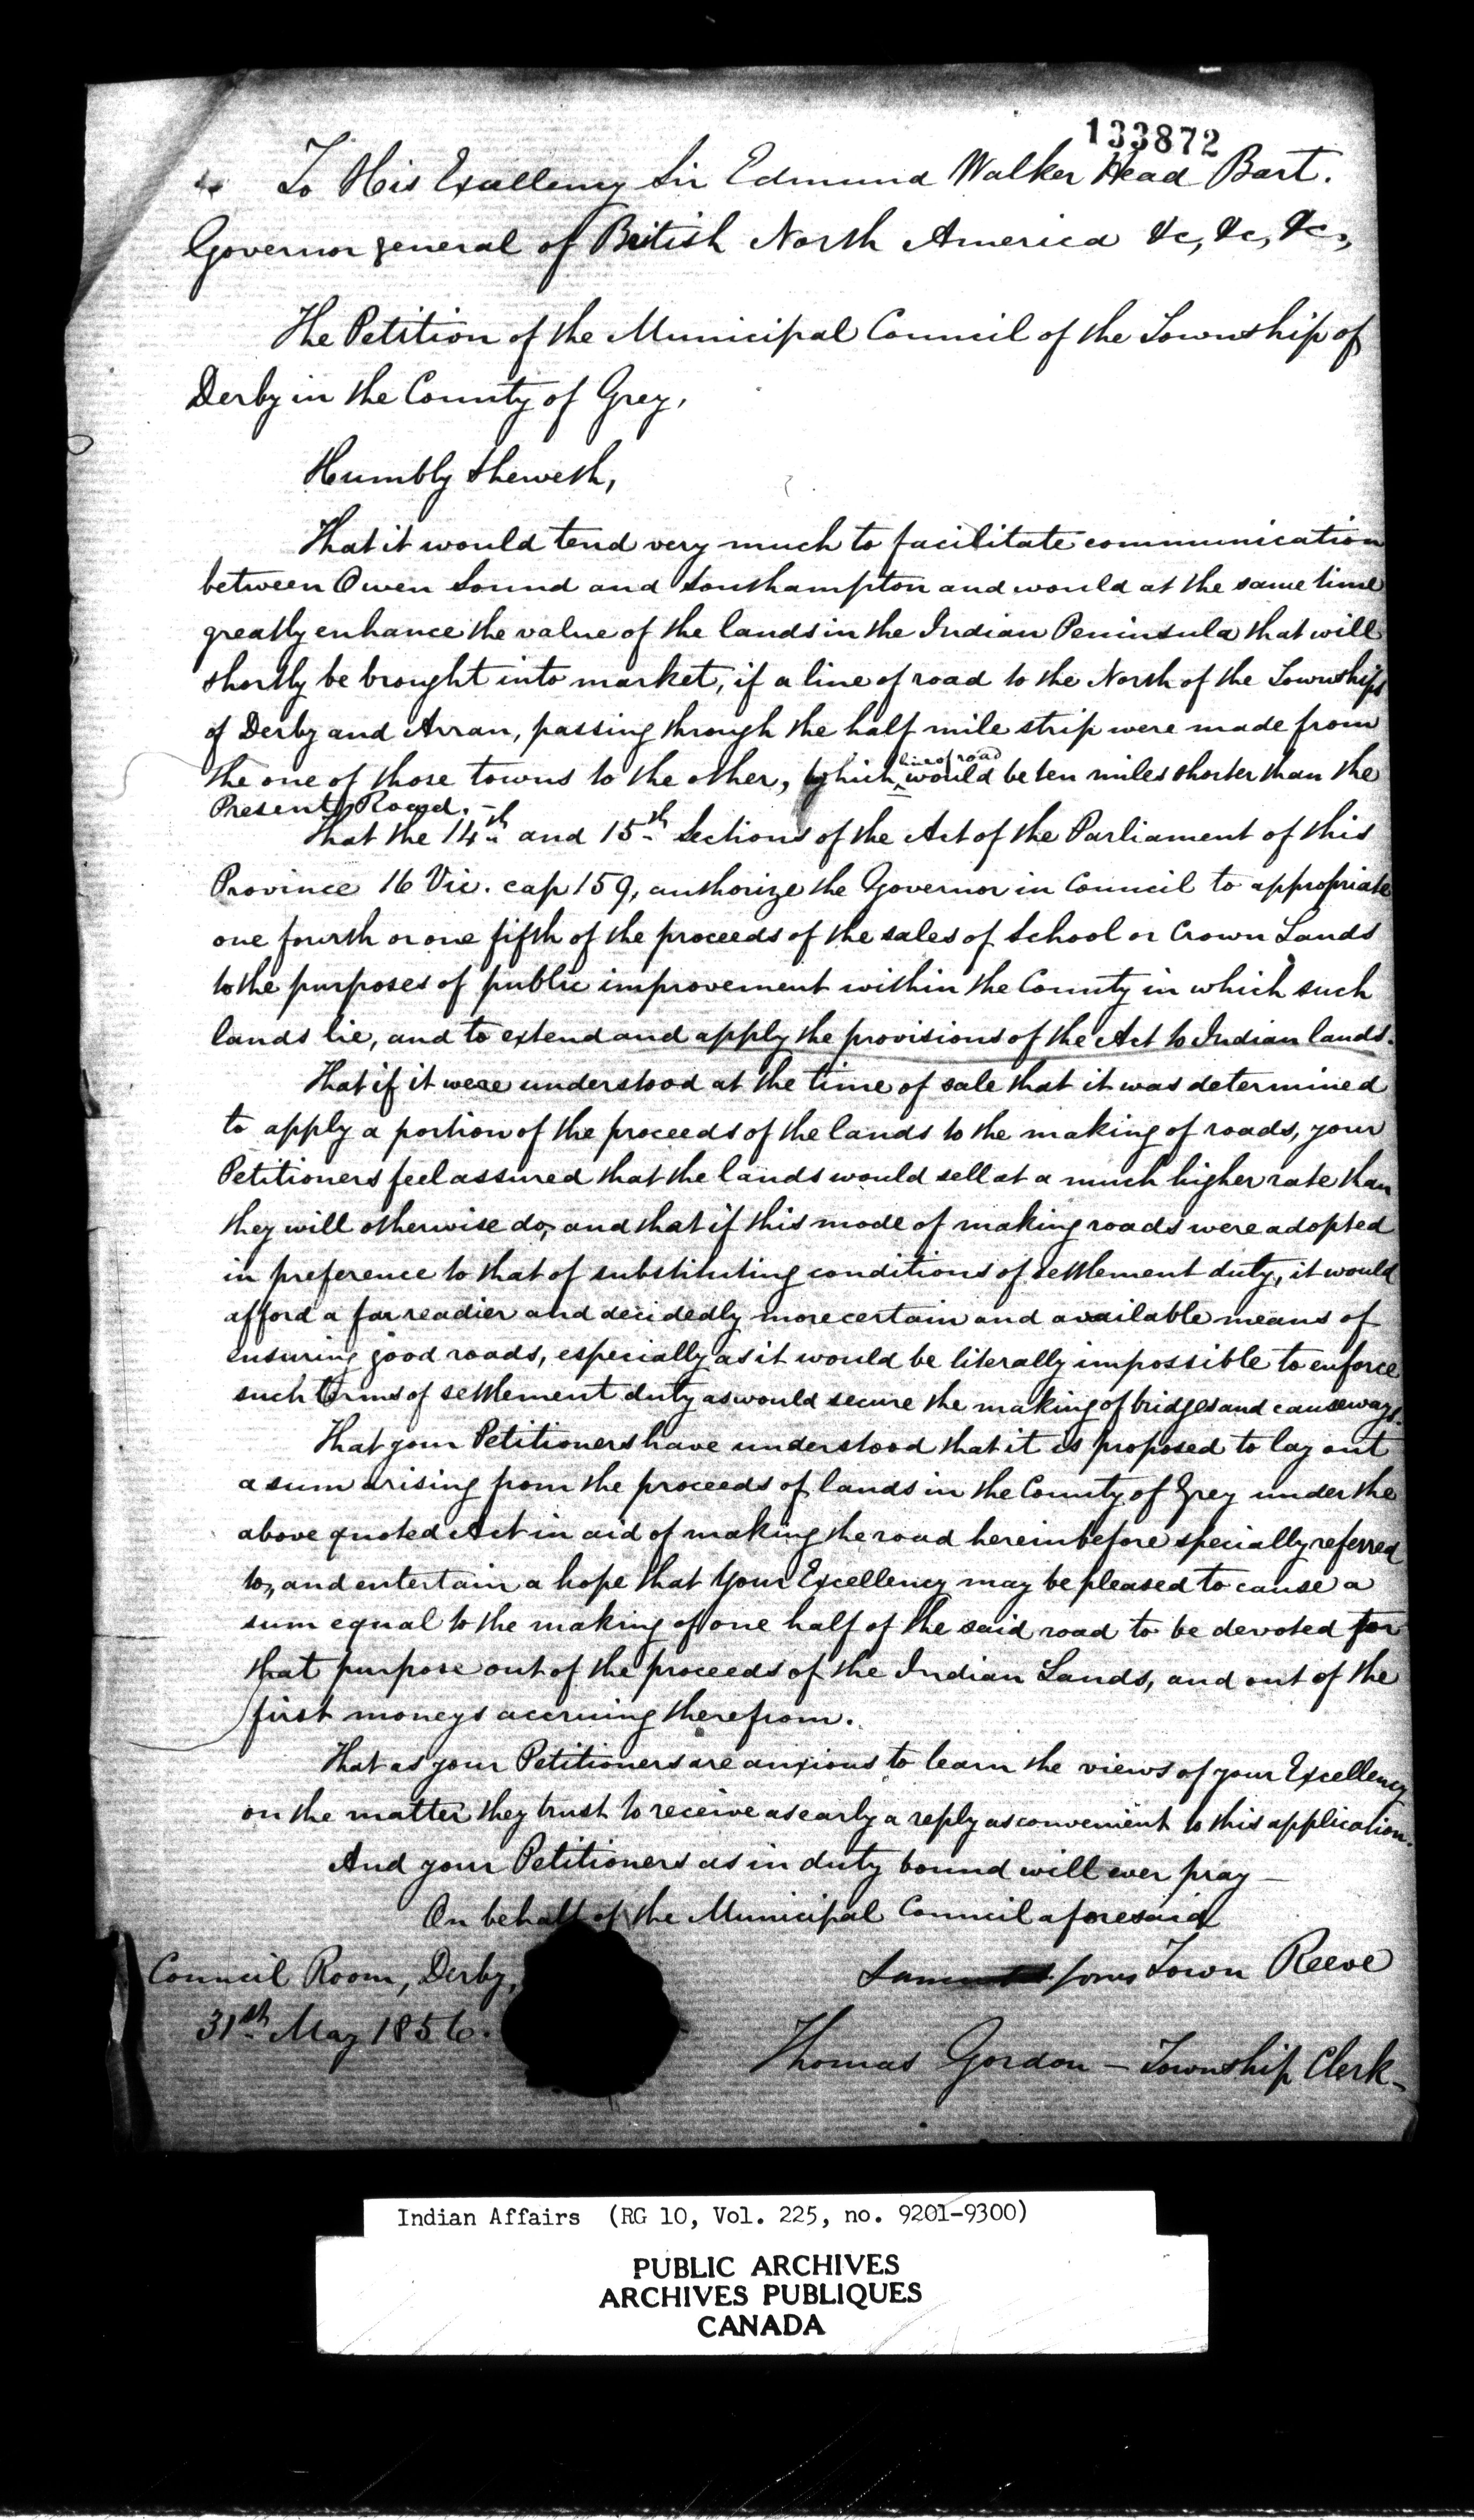 133872
To His Excellency Sir Edmund Walker Head Bart.
Governor general of British North America &c, &c, &c,
The Petition of the Municipal Council of the Township of
Derby in the County of Grey,
Humbly Sheweth,
That it would tend very much to facilitate communication
between Owen Sound and Southampton and would at the same time
greatly enhance the value of the lands in the Indian Peninsula that will
shortly be brought into market, if a line of road to the North of the Townships
of Derby and Arran, passing through the half mile strip were made from
line of road
the one of those towns to the other, which would be ten miles shorter than the
Present Road. -
That the 14th and 15th Sections of the Act of the Parliament of this
Province 16 Vic. cap 159, authorize the Governor in Council to appropriate
one fourth or one fifth of the proceeds of the sales of School or Crown Lands
to the purposes of public improvement within the County in which such
lands lie, and to extend and apply the provisions of the Act to Indian lands.
That if it were understood at the time of sale that it was determined
to apply a portion of the proceeds of the lands to the making of roads, your
Petitioners feel assured that the lands would sell at a much higher rate than
they will otherwise do, and that if this mode of making roads were adopted
in preference to that of substituting conditions of settlement duty, it would
afford a far readier and decidedly more certain and available means of
ensuring good roads, especially as it would be literally impossible to enforce
such terms of settlement duty as would secure the making of bridges and causeways.
That your Petitioners have understood that it is proposed to lay out
a sum arising from the proceeds of lands in the County of Grey under the
above quoted Act in aid of making the road hereinbefore specially referred
to, and entertain a hope that Your Excellency may be pleased to cause a
sum equal to the making of one half of the said road to be devoted for
that purpose out of the proceeds of the Indian Lands, and out of the
first moneys accruing therefrom.
That as your Petitioners are anxious to learn the views of your Excellency
on the matter they trust to receive as early a reply as convenient to this application.
And your Petitioners as in duty bound will ever pray —
On behalf of the Municipal Council aforesaid
Council Room, Derby,
31st May 1856.
Town Reeve
Thomas Gordon — Township Clerk -
Indian Affairs (RG 10, Vol. 225, no. 9201-9300)
PUBLIC ARCHIVES
ARCHIVES PUBLIQUES
CANADA